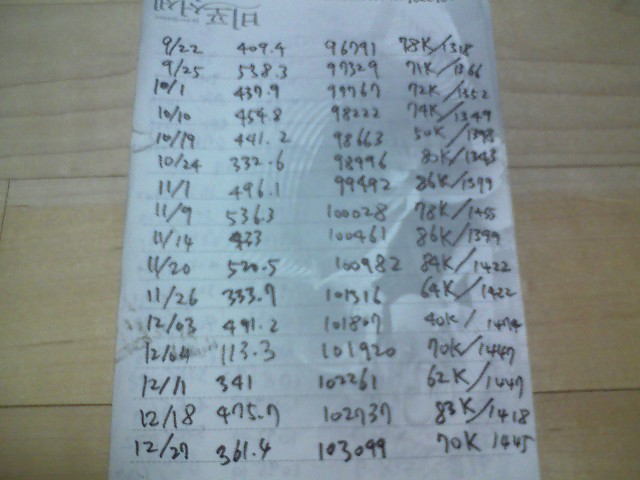 9/22 409.4 96791 78K/1318
9/25 538.3 97329 71K/1366
10/1 437.9 97767 72K/1352
10/10 454.8 98222 74K/1349
10/19 441.2 98663 50K/1393
10/24 332.6 98996 80K/1343
11/1 496.1 99492 86K/1399
11/9 536.3 100028 78K/1455
11/14 433 100461 86K/1399
11/20 520.5 100982 84K/1422
11/26 333.7 101316 64K/1422
12/03 491.2 101807 40K/1474
12/04 113.3 101920 70K/1447
12/11 341 102261 62K/1447
12/18 475.7 102737 83K/1418
12/27 361.4 103099 70K 1445